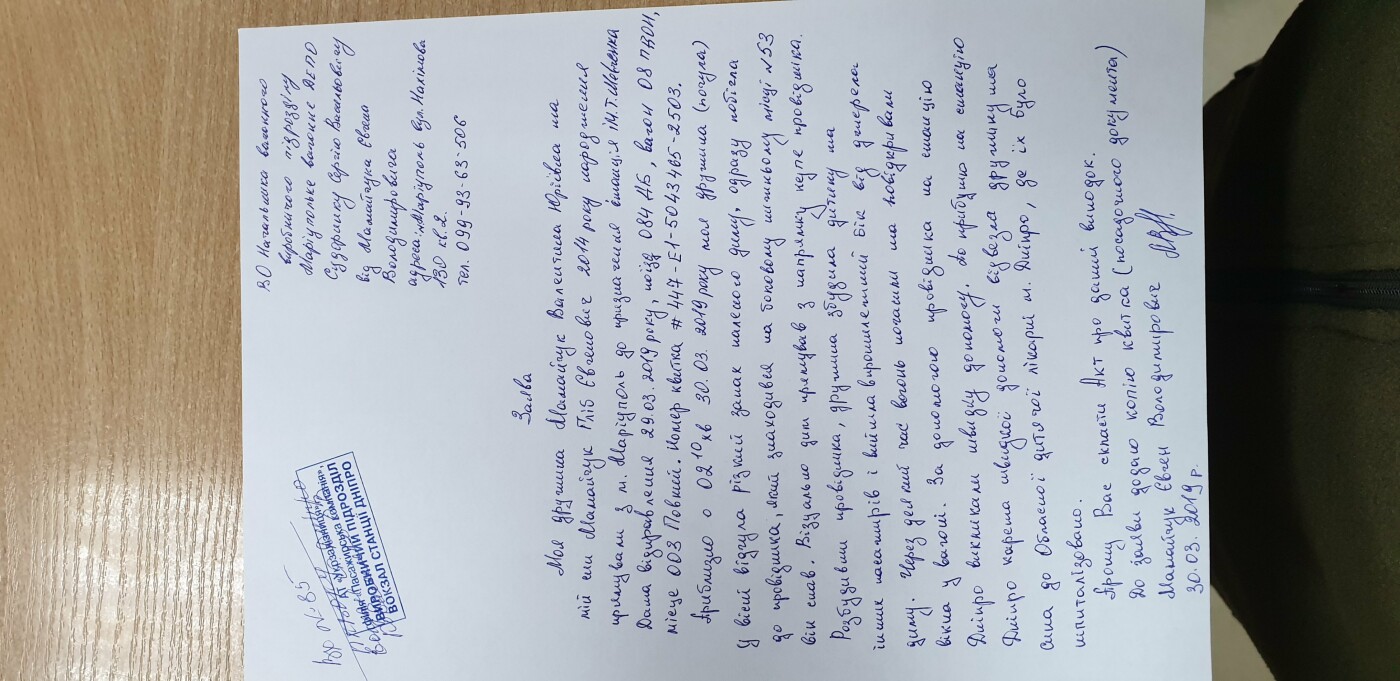 ВО Начальника вагонного
виробничого підрозділу
Маріупольке вагонне ДЕПО
Сударику Сергію Васильовичу
від Мамайчука Євгена
Володимировича
адреса: Маріуполь вул. Нахімова
130 кв. 2.
тел. 099-93-63-506
Вр №: 85
АТ «Укрзалізниця»
«Пасажирська компанія»,
ВИРОБНИЧИЙ ПІДРОЗДІЛ
ВОКЗАЛ СТАНЦІЇ ДНІПРО
Заява
Моя дружина Мамайчук Валентина Юріївна та
мій син Мамайчук Гліб Євгенович 2014 року народження
прямували з м. Маріуполь до призначення станція ім. Т. Шевченка
Дата відправлення 29.03.2019 року, поїзд 084 ДБ, вагон 08 ПВОН,
місце 003 Повний. Номер квитка # 447-Е1-5043465-2503.
Приблизно о 02 10 хв 30.03.2019 року моя дружина (почула)
у вісні відчула різкий запах паленого диму, одразу побігла
до провідника, який знаходився на боковому нижньому місці №53
він спав. Візуально дим прямував з напрямку купе провідника.
Розбудивши провідника, дружина збудила дитину та
інших пасажирів і вийшла в протилежний бік від джерела
диму. Через деякий час вогонь погасили та повідкривали
вікна у вагоні. За допомогою провідника на станцію
Дніпро викликали швидку допомогу. По прибуттю на станцію
Дніпро карета швидкої допомоги відвезла дружину та
сина до Обласної дитячої лікарні м. Дніпро, де їх було
шпиталізовано.
Прошу Вас скласти Акт про даний випадок.
До заяви додаю копію квитка (посадочного документа)
Мамайчук Євген Володимирович
30.03.2019 р.